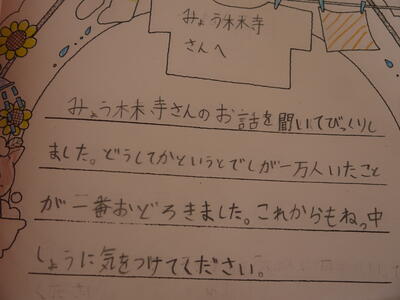 みょう林寺
さんへ
みょう林寺さんのお話を聞いてびっくりし
ました。どうしてかというとでしが一万人いたこと
が一番おどろきました。これからもねっ中
しょうに気をつけてください。